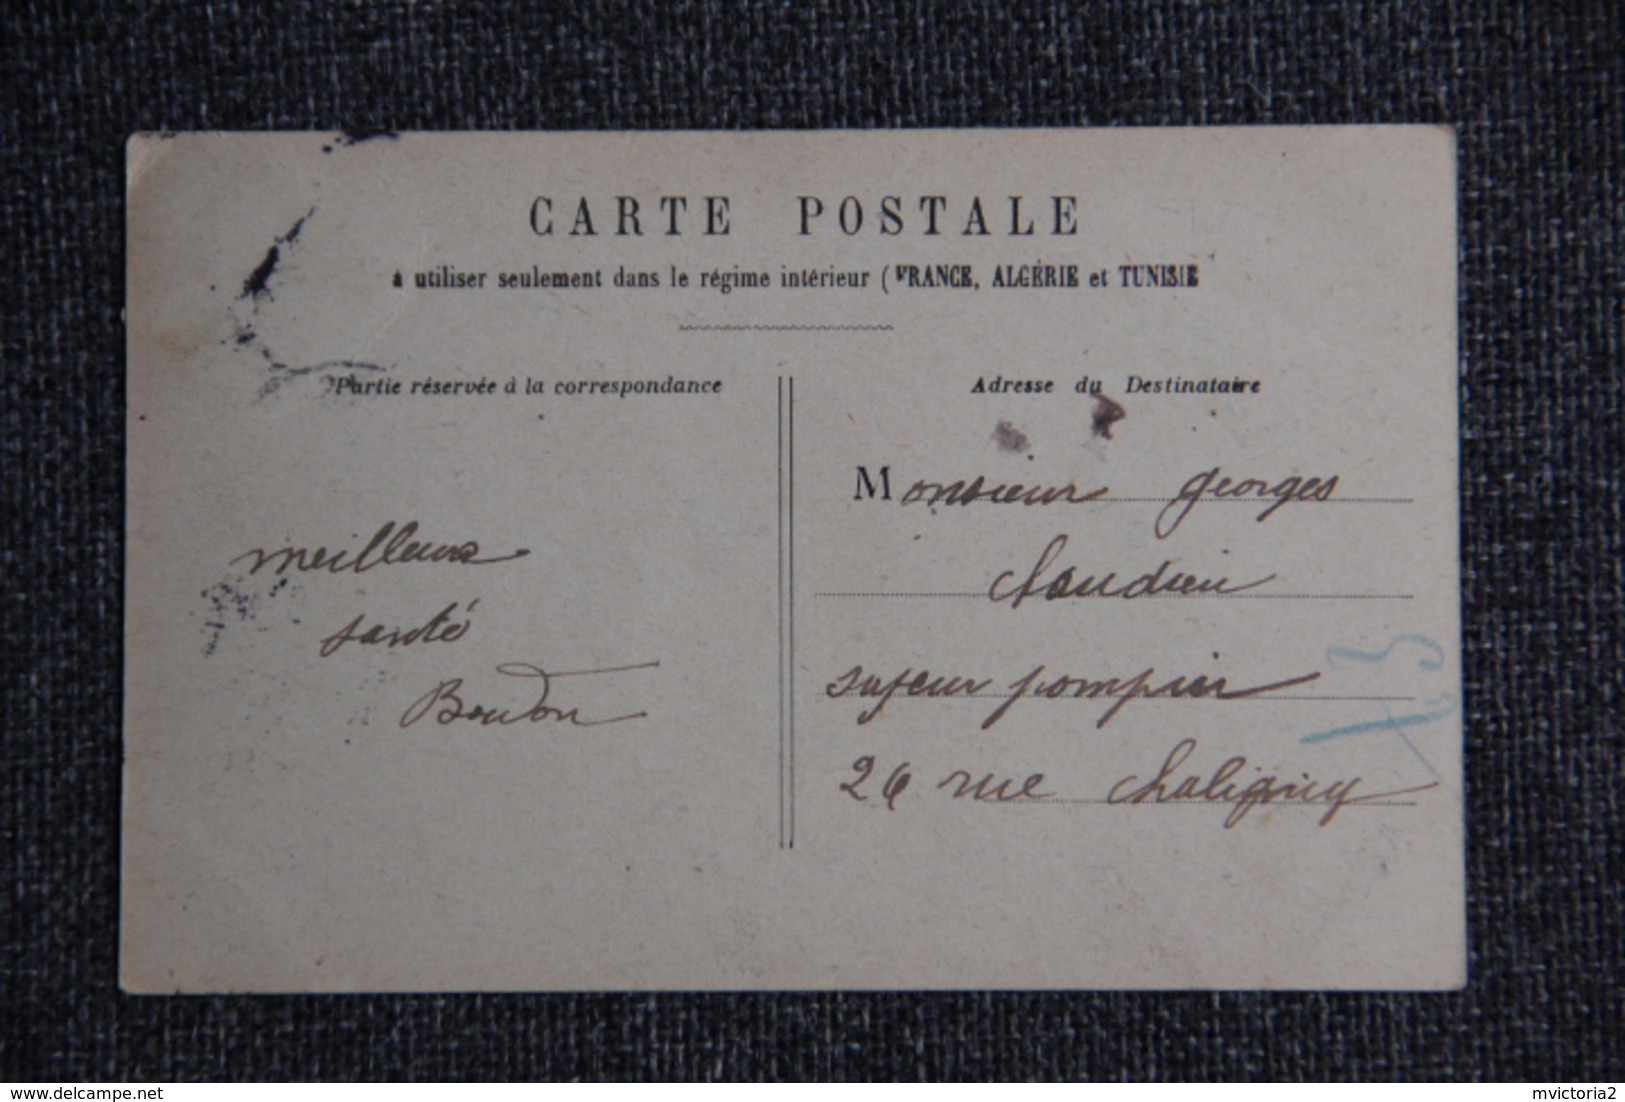 CARTE POSTALE
à utiliser seulement dans le régime intérieur (FRANCE, ALGÉRIE et TUNISIE
Partie réservée à la correspondance
Adresse du Destinataire
meilleure
santé
Boudon
Monsieur georges
chaudieu
sapeur pompier
26 rue chaligny
delcampe.net
mvictoria2